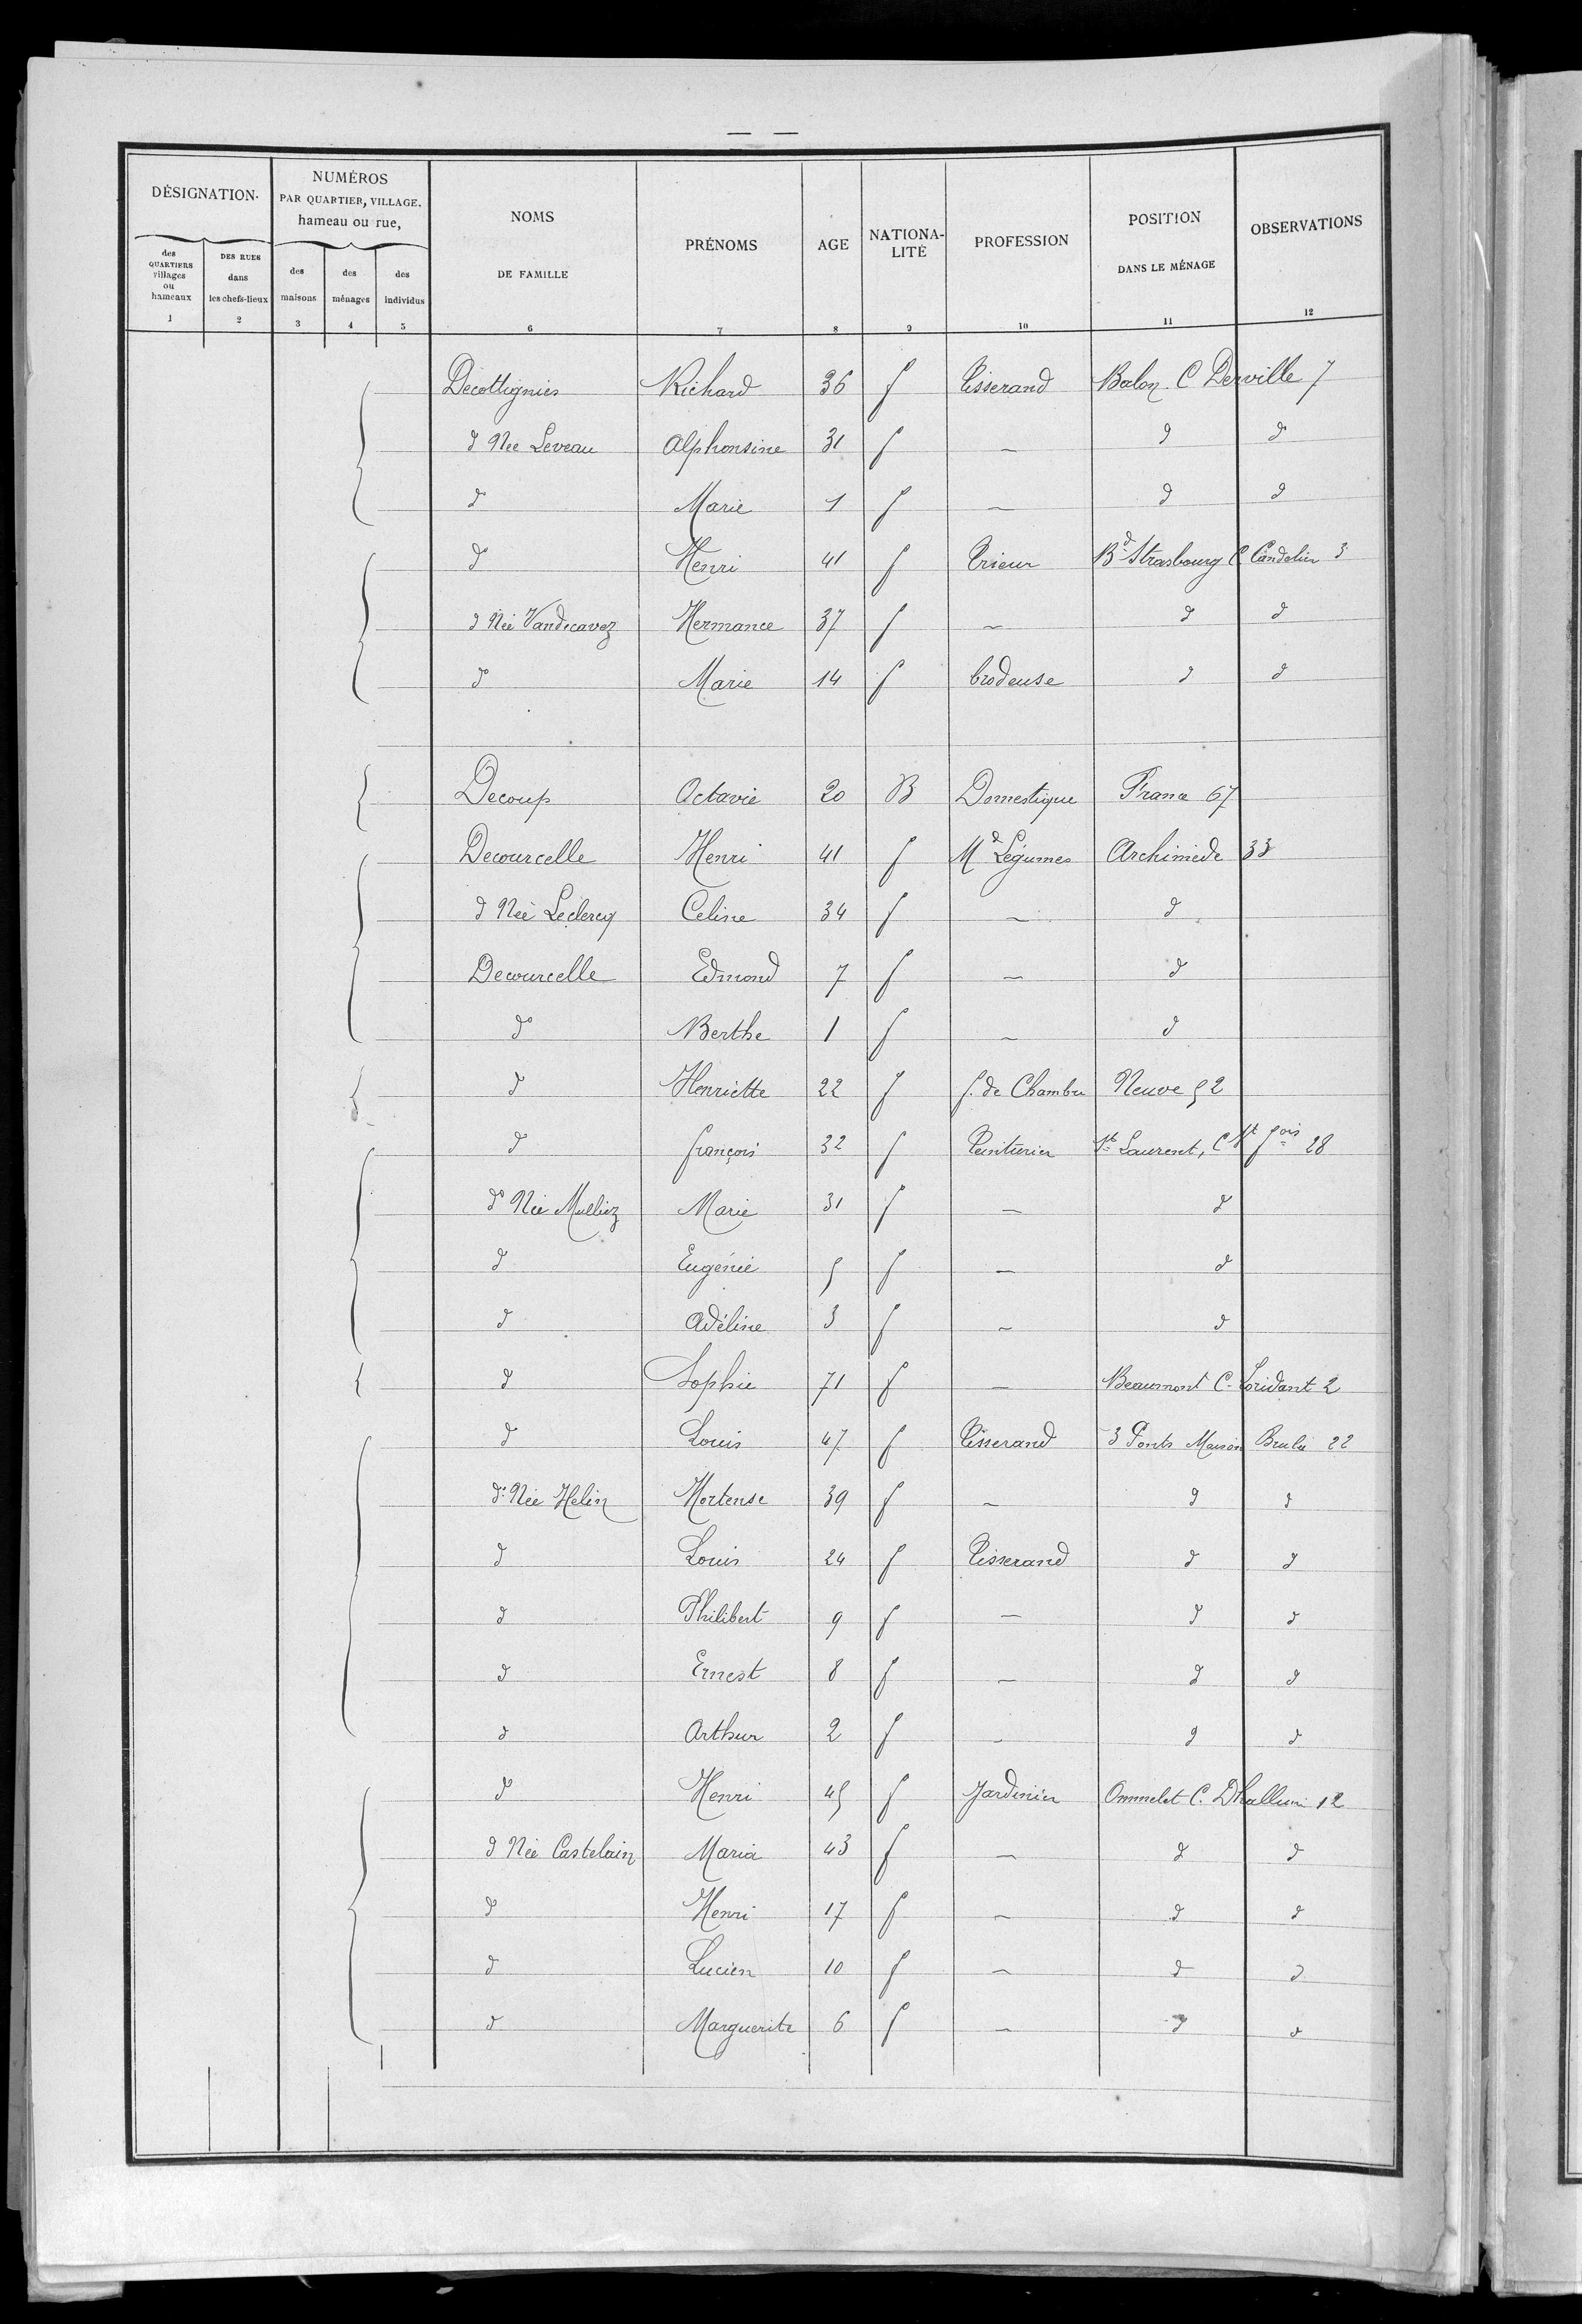 DÉSIGNATION.
NUMÉROS
PAR QUARTIER, VILLAGE.
hameau ou rue,
NOMS
DE FAMILLE
PRÉNOMS
AGE
NATIONA-
LITÉ
PROFESSION
POSITION
DANS LE MÉNAGE
OBSERVATIONS
des
QUARTIERS
villages
ou
hameaux
DES RUES
dans
les chefs-lieux
des
maisons
des
ménages
des
individus
1 2 3 4 5 6 7 8 9 10 11 12
Decottignies Richard 36 f Tisserand Balon C Derville 7
d Née Leveau Alphonsine 31 f — d d
d° Marie 1 f — d d
d° Henri 41 f Trieur Bd Strasbourg C Candelier 3
d Née Vandecavez Hermance 37 f — d d
d° Marie 14 f brodeuse d d
Decoup Octavie 20 B Domestique France 67
Decourcelle Henri 41 f Md Légumes Archimède 33
d Née Leclercq Celine 34 f — d
Decourcelle Edmond 7 f — d
d° Berthe 1 f — d
d Henriette 22 f f. de Chambre Neuve 52
d françois 32 f Teinturier St Laurent, C St fois 28
d° Née Mulliez Marie 31 f — d
d Eugénie 5 f — d
d Adéline 3 f — d
d Sophie 71 f — Beaumont C. Loridant 2
d Louis 47 f Tisserand 3 Ponts Maison Brulée 22
d° Née Helin Hortense 39 f — d d
d Louis 24 f Tisserand d d
d Philibert 9 f — d d
d Ernest 8 f — d d
d Arthur 2 f — d d
d° Henri 45 f Jardinier Ommelet C. Dhalluin 12
d Née Castelain Maria 43 f — d d
d° Henri 17 f — d d
d Lucien 10 f — d d
d Marguerite 6 f — d d